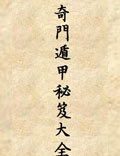 奇門遁甲秘笈大全